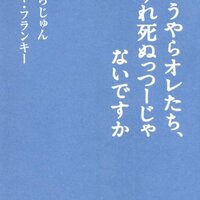 うやらオレたち、
ずれ死ぬっつーじゃ
ないですか
らじゅん
・フランキー